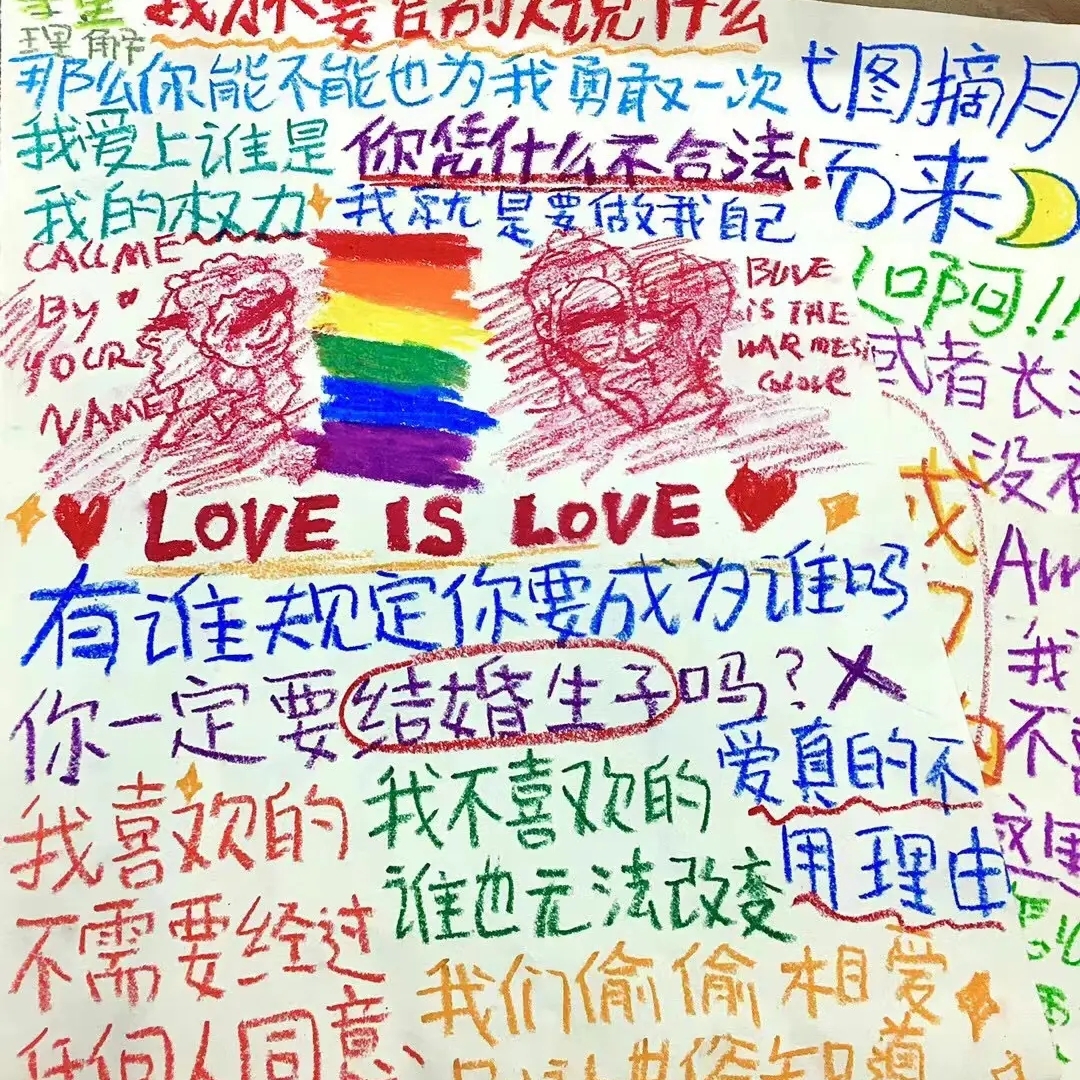 理解
我不要告别人说什么
那么你能不能也为我勇敢一次
我爱上谁是
我的权力
你凭什么不合法!
我就是要做我自己
CALL ME
BY
YOUR
NAME
BLUE
IS THE
WARMEST
COLOUR
图摘月
而来
啊!!
或者长
没不
LOVE IS LOVE
有谁规定你要成为谁吗
你一定要结婚生子吗?
我喜欢的
不需要经过
任何人同意
我不喜欢的
谁也无法改变
爱真的不
用理由
我们偷偷相爱
我
不
这里